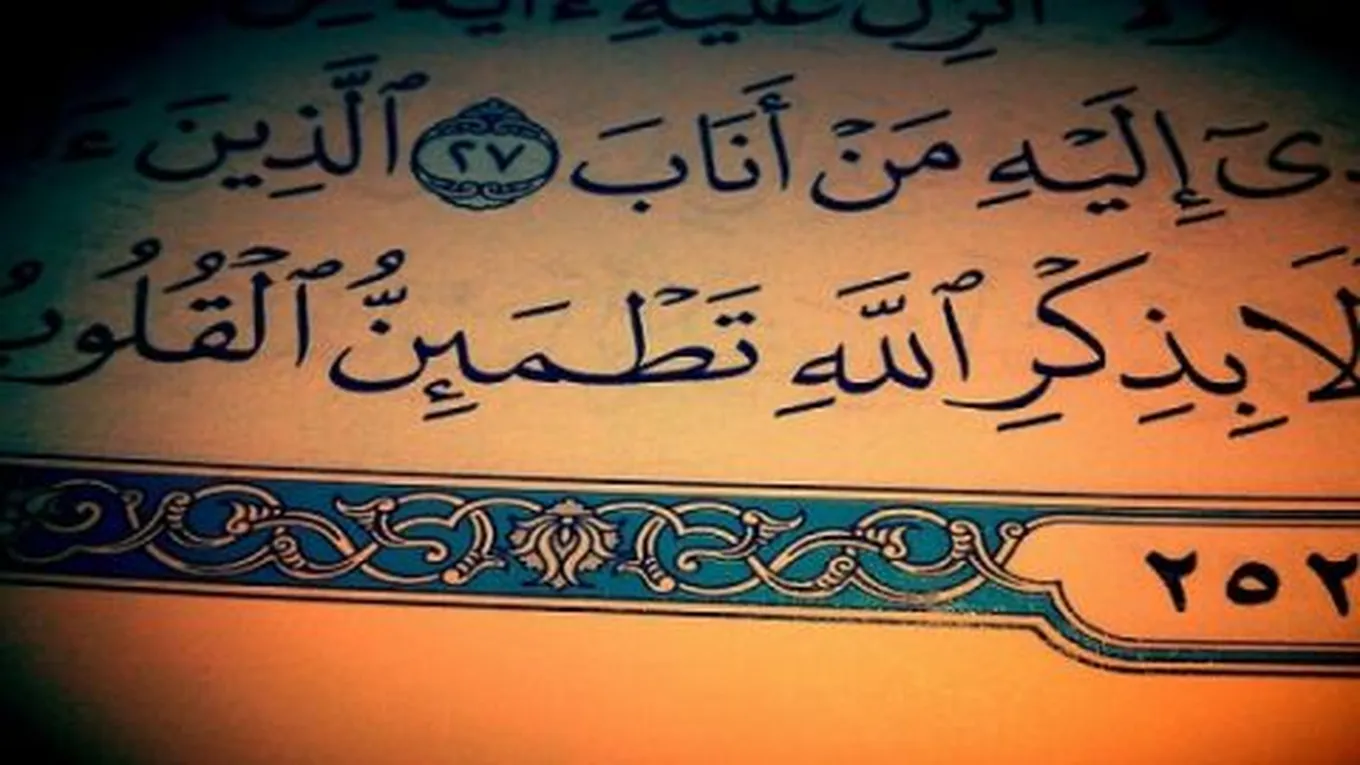 أُنزِلَ عَلَيْهِ ءَايَةٌ مِّن
إِلَيْهِ مَنْ أَنَابَ ٢٧ ٱلَّذِينَ
بِذِكْرِ ٱللَّهِ تَطْمَئِنُّ ٱلْقُلُوبُ
٢٥٢